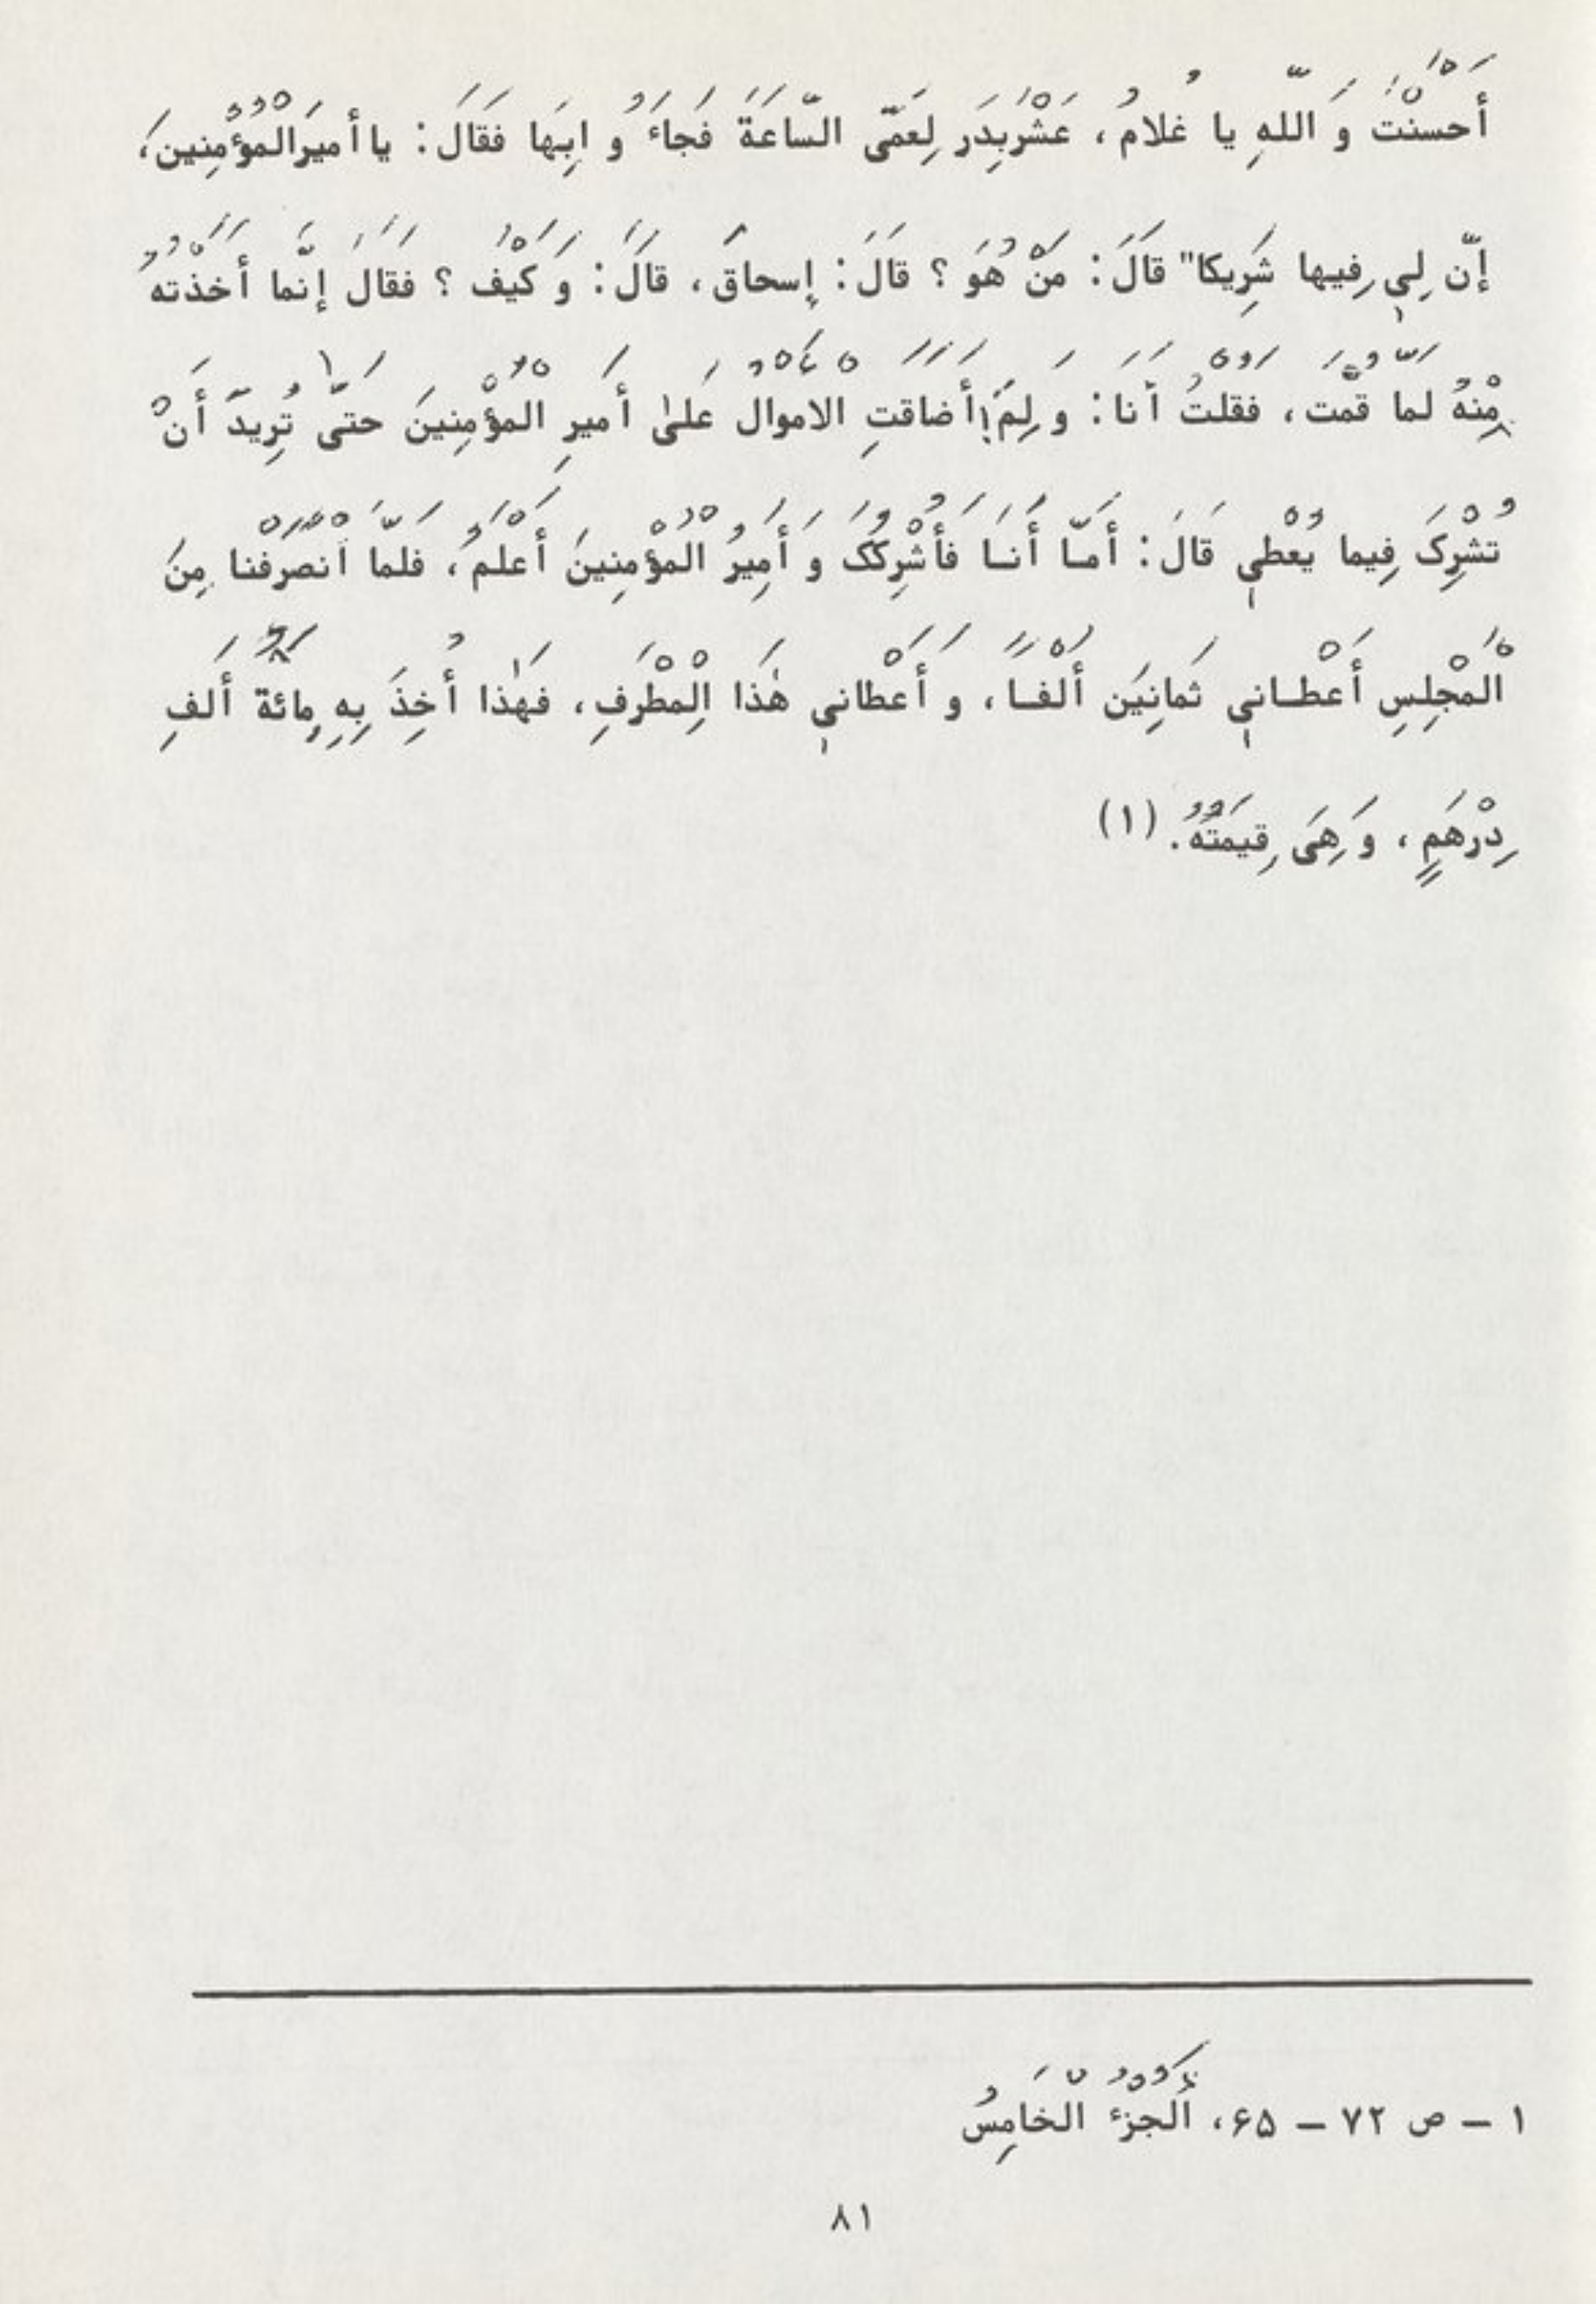 أَحْسَنْتَ وَ اللّهِ يا غُلامُ، عَشْرَ بِدَرٍ لِعَمّى السّاعَةَ فَجاءُ و ابِها فَقالَ: يا أميرَ الْمُؤْمِنينَ،
إنّ لِي فِيها شَرِيكا" قالَ: مَنْ هُوَ؟ قالَ: إسحاقَ، قالَ: وَ كَيْفَ؟ فَقالَ إنّما أَخَذْتُهُ
مِنْهُ لَمّا قُمْتَ، فَقُلْتُ أَنَا: وَ لِمَ؟! أَضاقَتِ الاموالُ عَلىٰ أَميرِ الْمُؤْمِنينَ حَتّىٰ تُرِيدَ أَنْ
تُشْرِکَ فِيما يُعْطِي قالَ: أَمّا أَنَا فَأُشْرِكُکَ وَ أَمِيرُ الْمُؤْمِنِينَ أَعْلَمُ، فَلَمّا اَنْصَرَفْنا مِنَ
الْمَجْلِسِ أَعْطانِي ثَمانِينَ أَلْفاً، وَ أَعْطانِي هٰذَا الْمِطْرَفَ، فَهٰذا أُخِذَ بِهِ مِائَةُ أَلفِ
دِرْهَمٍ، وَ هِىَ قِيمَتُهُ. (١)
١ – ص ٧٢ – ۶۵، اَلْجُزْءُ الْخَامِسُ
٨١